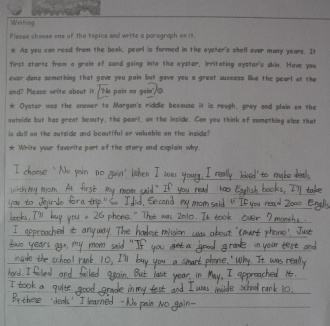 Writing
Please choose one of the topics and write a paragraph on it.
★ As you can read from the book, pearl is formed in the oyster's shell over many years. It
first starts from a grain of sand going into the oyster, irritating oyster's skin. Have you
ever done something that gave you pain but gave you a great success like the pearl at the
end? Please write about it. (No pain no gain)
★ Oyster was the answer to Morgan's riddle because it is rough, grey and plain on the
outside but has great beauty, the pearl, on the inside. Can you think of something else that
is dull on the outside and beautiful or valuable on the inside?
★ Write your favorite part of the story and explain why.
I choose 'No pain no gain' When I was young, I really loved to make deals
with my mom. At first my mom said "If you read 100 English books, I'll take
you to Jejudo for a trip." So I did. Second my mom said "If you read 2000 English
books, I'll buy you a 2G phone." That was 2010. It took over 7 months.
I approached it anyway. The hardest mission was about 'smart phone'. Just
two years ago, my mom said "If you get a good grade in your test and
inside the school rank 10, I'll buy you a smart phone." Why. It was really
hard. I failed and failed again. But last year, in May, I approached it.
I took a quite good grade in my test and I was inside school rank 10.
By these 'deals' I learned -No pain No gain-